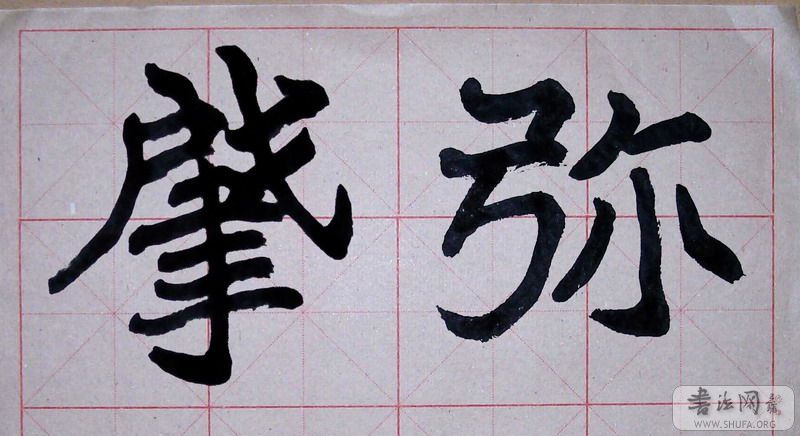 弥肈
書法网
WWW.SHUFA.ORG